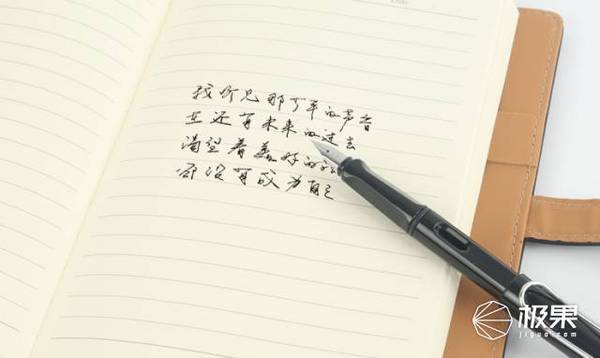 我听见那少年的声音
在还有未来的过去
渴望着美好的
却没有成为自己
极果
jiguo.com